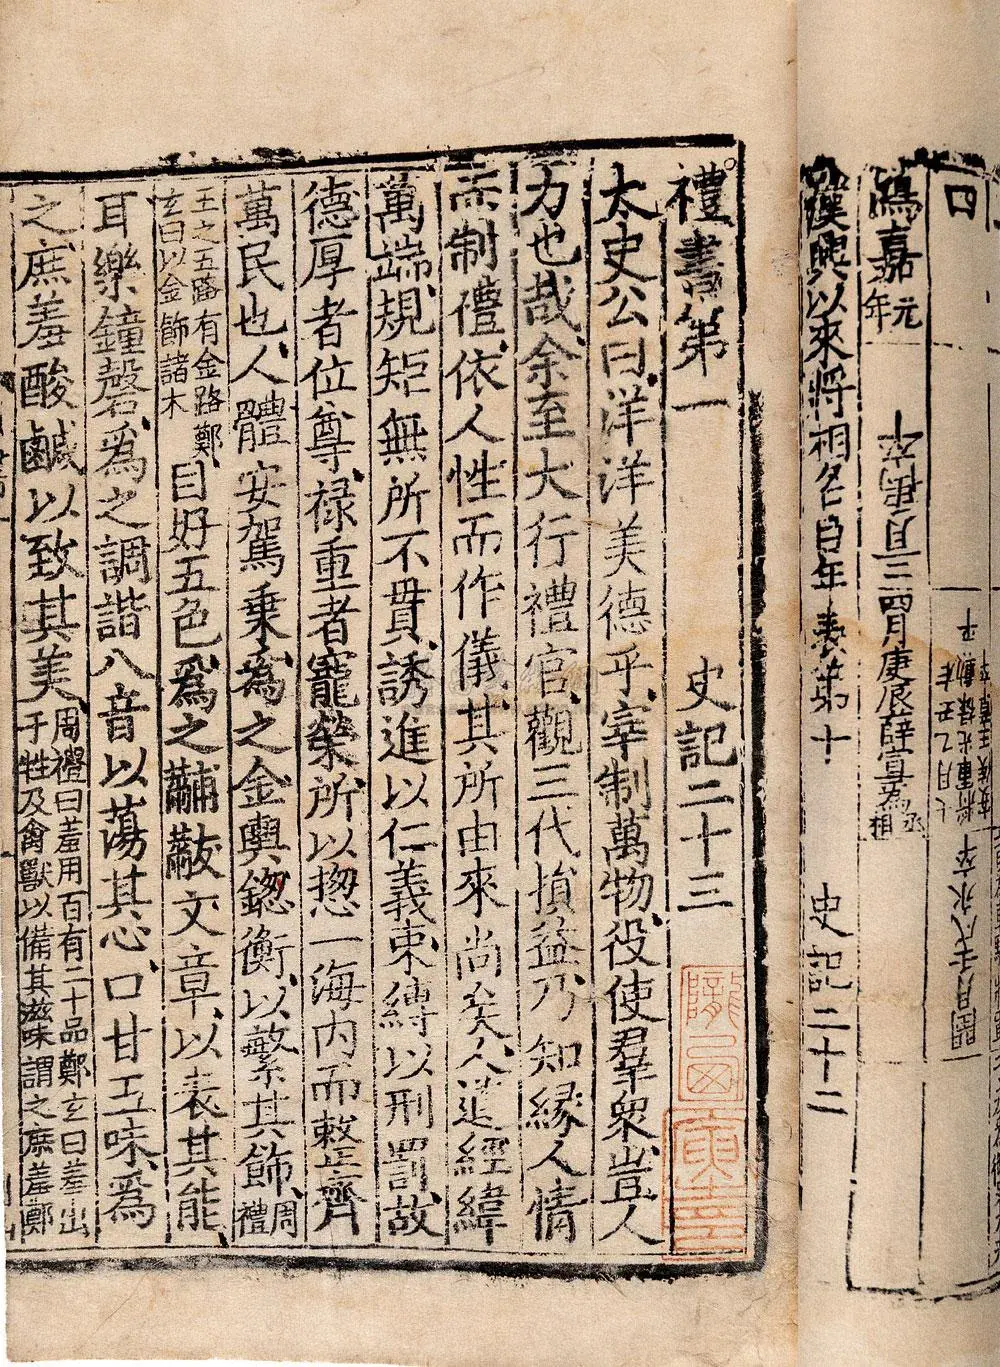 鴻嘉元年
三月庚辰薛宣爲丞相
漢興以來將相名臣年表第十
史記二十二
禮書第一
史記二十三
太史公曰洋洋美德乎宰制萬物役使羣衆豈人
力也哉余至大行禮官觀三代損益乃知緣人情
而制禮依人性而作儀其所由來尚矣人道經緯
萬端規矩無所不貫誘進以仁義束縛以刑罰故
德厚者位尊祿重者寵榮所以揔一海内而整齊
萬民也人體安駕乗爲之金輿鍯衡以繁其飾周禮
王之五路有金路鄭
玄曰以金飾諸木
目好五色爲之黼黻文章以表其能
耳樂鐘磬爲之調諧八音以蕩其心口甘五味爲
之庶羞酸鹹以致其美
周禮曰羞用百有二十品鄭玄曰羞出
于牲及禽獸以備其滋味謂之庶羞鄭